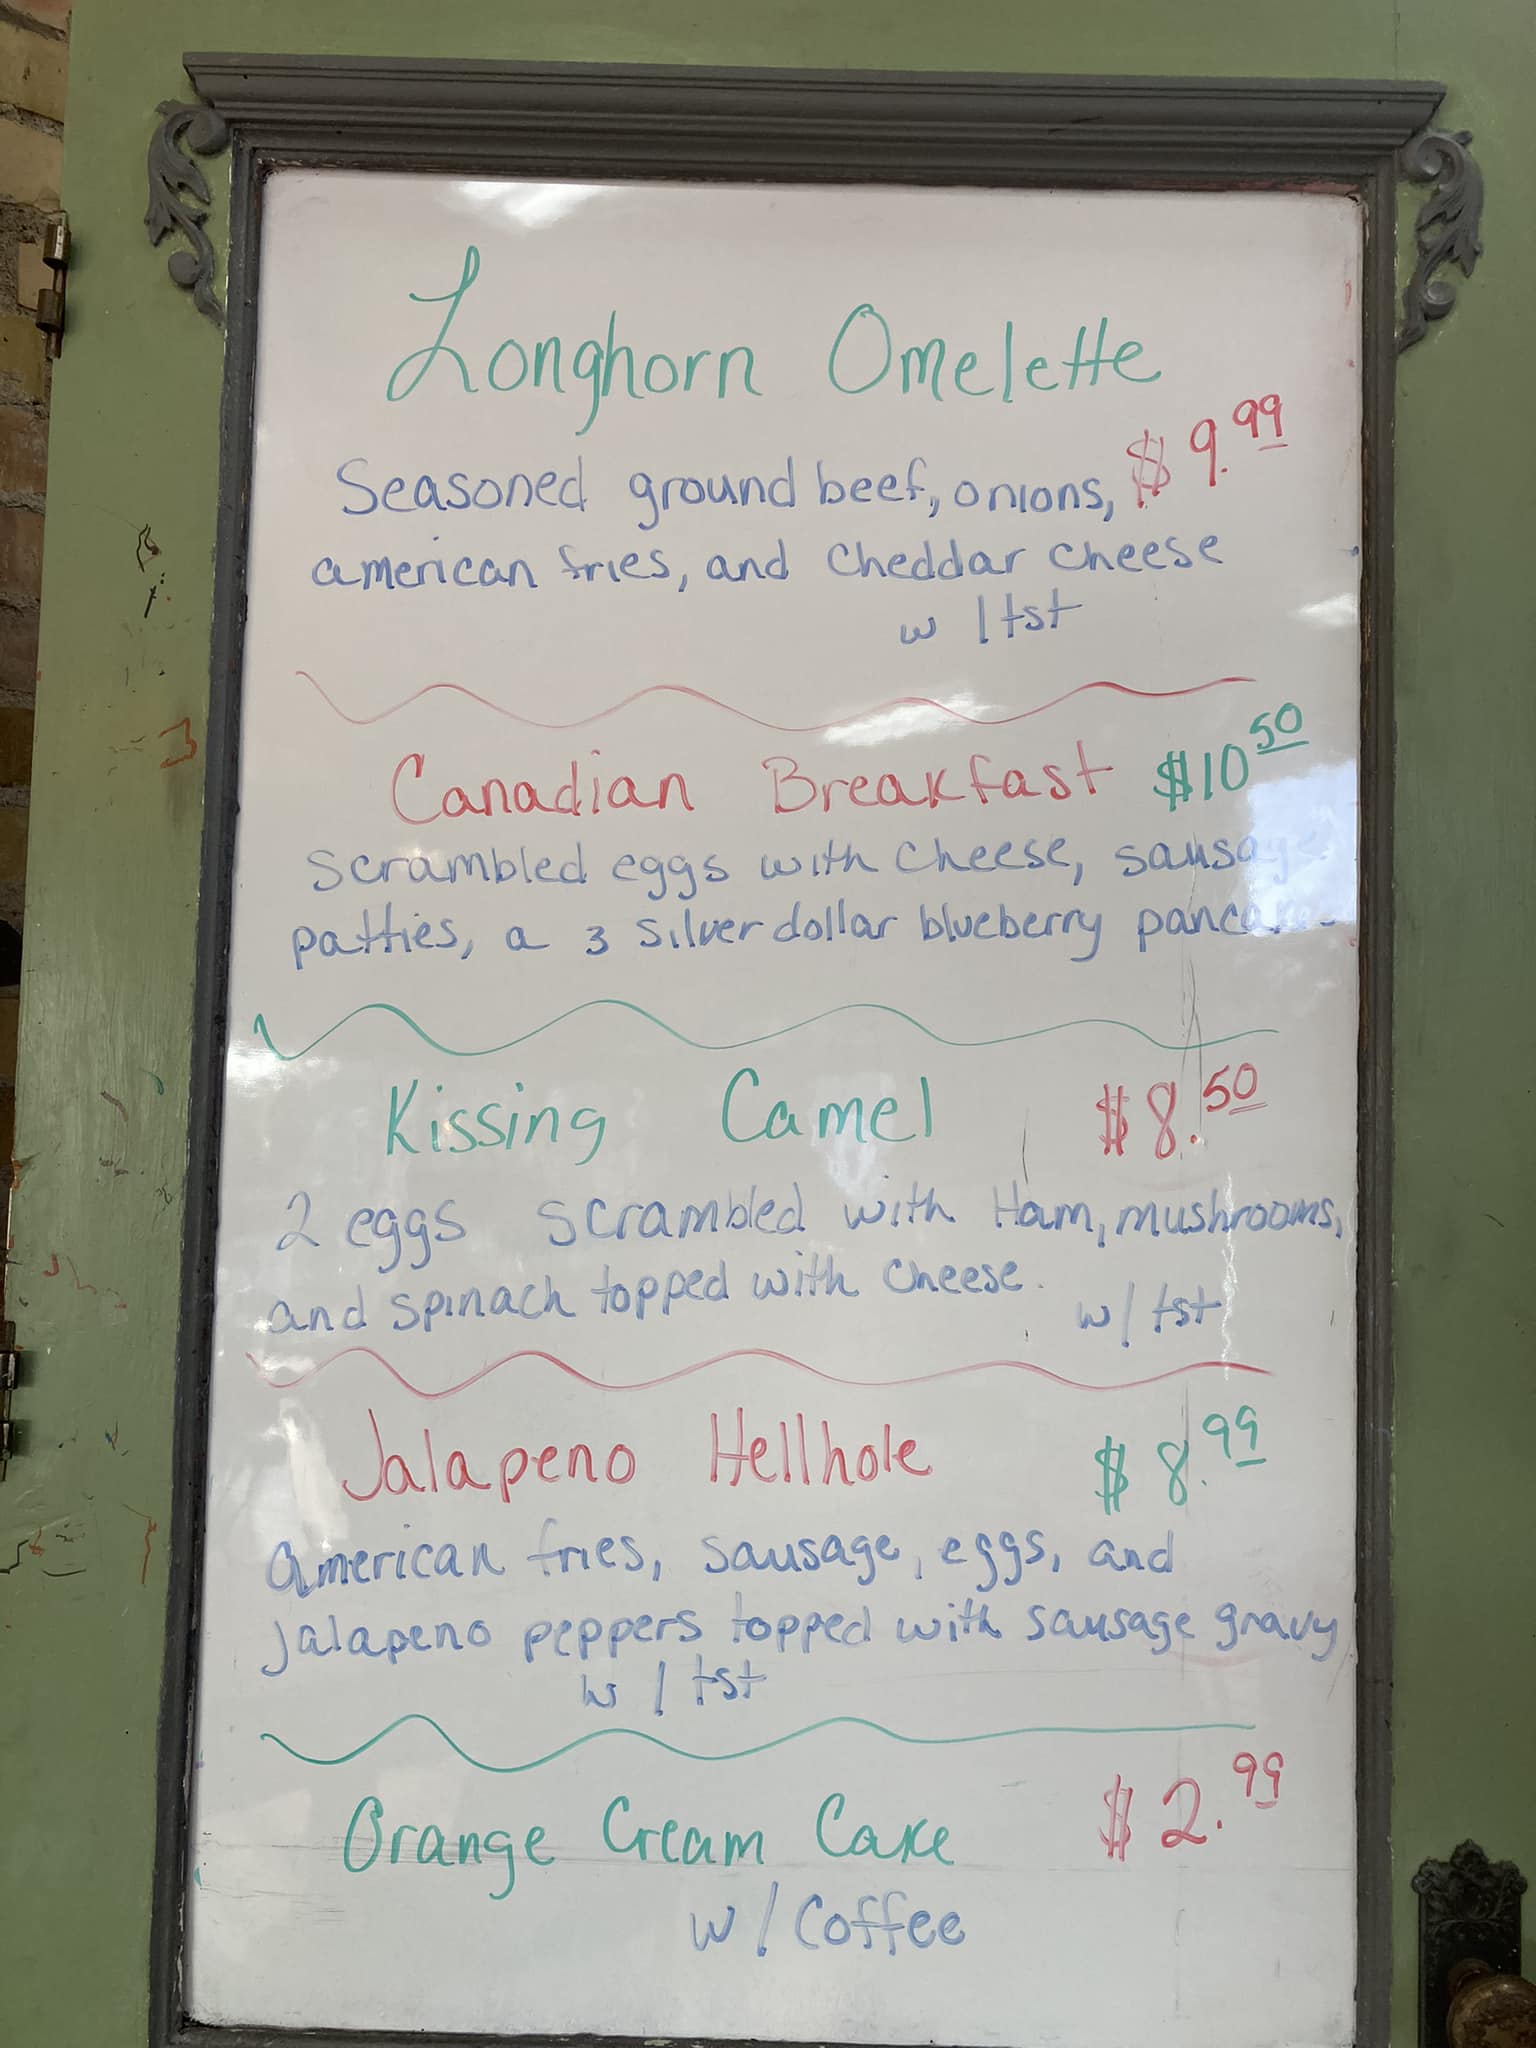 Longhorn Omelette
$9.99
Seasoned ground beef, onions,
american fries, and cheddar cheese
w/tst
Canadian Breakfast $10 50
Scrambled eggs with cheese, sausage
patties, a 3 silver dollar blueberry pancakes
Kissing Camel $8.50
2 eggs scrambled with Ham, mushrooms,
and spinach topped with cheese. w/tst
Jalapeno Hellhole $8.99
american fries, sausage, eggs, and
jalapeno peppers topped with sausage gravy
w/tst
Orange Cream Cake $2.99
w/Coffee